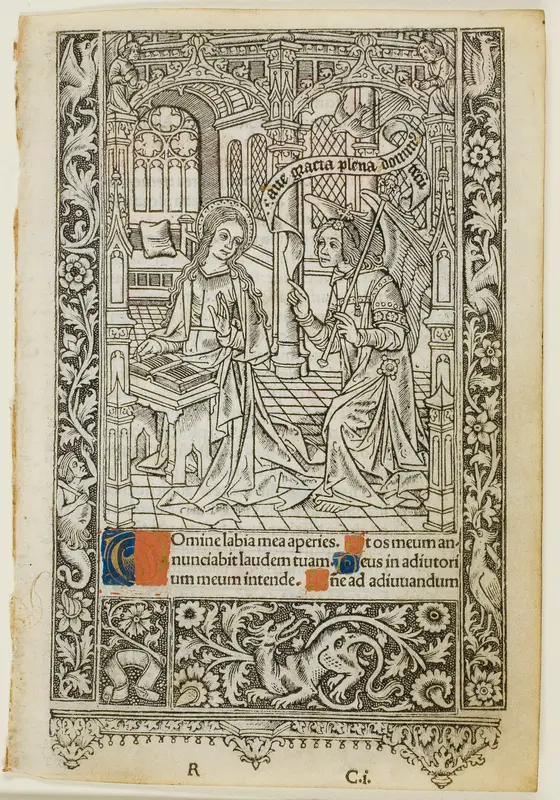 aue gracia plena domin⁹ tecū
Omine labia mea aperies. t os meum an-
nunciabit laudem tuam. Deus in adiutori
um meum intende. ñe ad adiuuandum
R C.i.